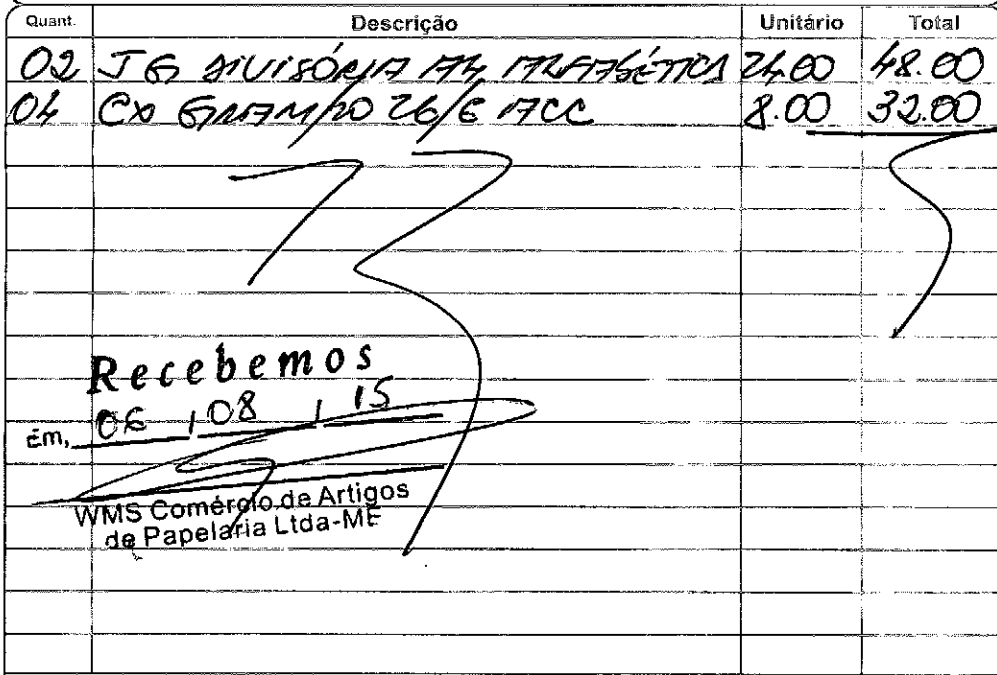 Quant. Descrição Unitário Total
02 JG DIVISÓRIA A4 ALFABÉTICA 24.00 48.00
04 CX GRAMPO 26/6 ACC 8.00 32.00
Recebemos
Em, 06 / 08 / 15
WMS Comércio de Artigos
de Papelaria Ltda-ME